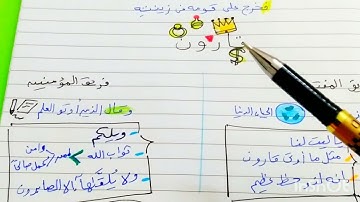 فخرج على قومه في زينته
قارون
$
فريق المؤمنين
وقال الذين أوتو العلم
الحياة الدنيا
ويلكم
ثواب الله خير لمن ءامن وعمل صالحًا
ولا يلقها إلا الصابرون
يا ليت لنا
مثل ما أوتي قارون
إنه لذو حظ عظيم